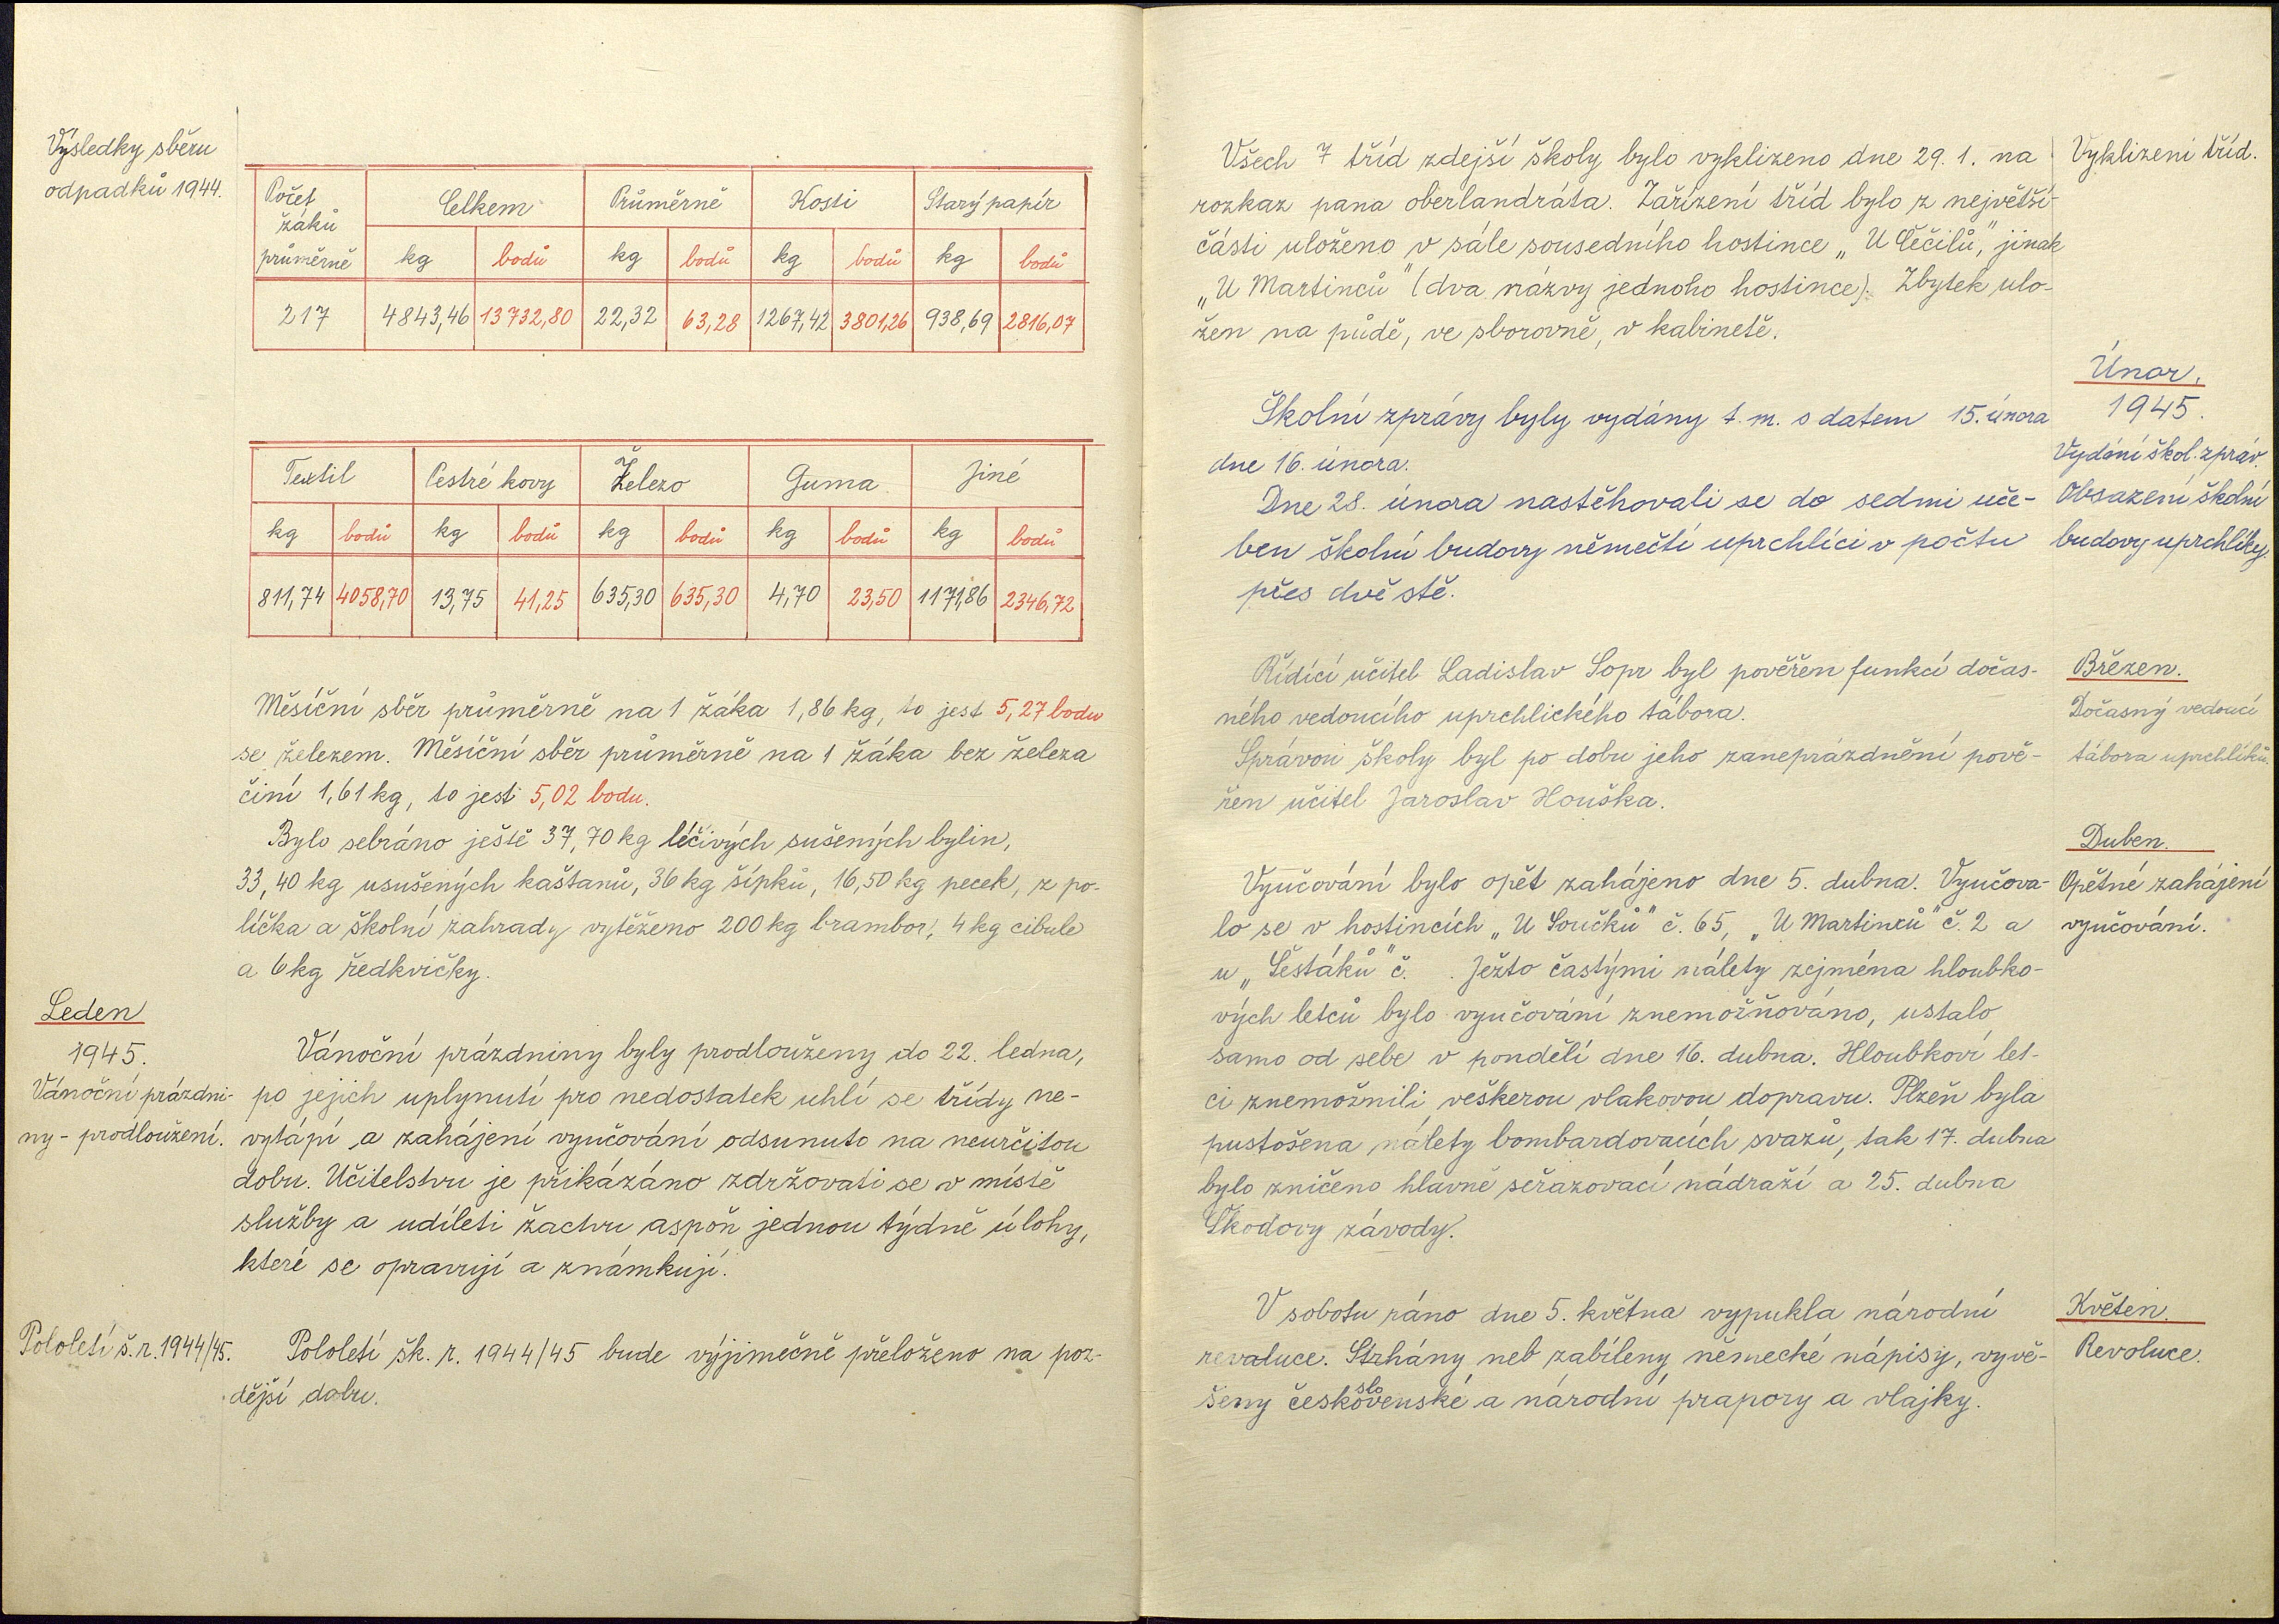 Výsledky sběru
odpadků 1944.
Počet žáků průměrně | Celkem | Průměrně | Kosti | Starý papír
kg | bodů | kg | bodů | kg | bodů | kg | bodů
217 | 4843,46 | 13732,80 | 22,32 | 63,28 | 1267,42 | 3801,26 | 938,69 | 2816,07
Textil | Pestré kovy | Železo | Guma | Jiné
kg | bodů | kg | bodů | kg | bodů | kg | bodů | kg | bodů
811,74 | 4058,70 | 13,75 | 41,25 | 635,30 | 635,30 | 4,70 | 23,50 | 1171,86 | 2346,72
Měsíční sběr průměrně na 1 žáka 1,86 kg, to jest 5,27 bodu
se železem. Měsíční sběr průměrně na 1 žáka bez železa
činí 1,61 kg, to jest 5,02 bodu.
Bylo sebráno ještě 37,70 kg léčivých sušených bylin,
33,40 kg usušených kaštanů, 36 kg šípků, 16,50 kg pecek, z po-
líčka a školní zahrady vytěženo 200 kg brambor, 4 kg cibule
a 6 kg ředkvičky.
Leden
1945.
Vánoční prázdni-
ny - prodloužení.
Vánoční prázdniny byly prodlouženy do 22. ledna,
po jejich uplynutí pro nedostatek uhlí se třídy ne-
vytápí a zahájení vyučování odsunuto na neurčitou
dobu. Učitelstvu je přikázáno zdržovati se v místě
služby a udíleti žactvu aspoň jednou týdně úlohy,
které se opravují a známkují.
Pololetí š.r. 1944/45.
Pololetí šk. r. 1944/45 bude výjimečně přeloženo na poz-
dější dobu.
Všech 7 tříd zdejší školy bylo vyklizeno dne 29. 1. na
rozkaz pana oberlandráta. Zařízení tříd bylo z největší
části uloženo v sále sousedního hostince „U Čečilů", jinak
„U Martinců" (dva názvy jednoho hostince). Zbytek ulo-
žen na půdě, ve sborovně, v kabinetě.
Vyklizení tříd.
Únor.
1945.
Vydání škol. zpráv.
Obsazení školní
budovy uprchlíky.
Školní zprávy byly vydány t. m. s datem 15. února
dne 16. února.
Dne 28. února nastěhovali se do sedmi uče-
ben školní budovy němečtí uprchlíci v počtu
přes dvě stě.
Březen.
Dočasný vedoucí
tábora uprchlíků.
Řídící učitel Ladislav Sopr byl pověřen funkcí dočas-
ného vedoucího uprchlického tábora.
Správou školy byl po dobu jeho zaneprázdnění pově-
řen učitel Jaroslav Houška.
Duben.
Opětné zahájení
vyučování.
Vyučování bylo opět zahájeno dne 5. dubna. Vyučova-
lo se v hostincích „U Součků" č. 65, „U Martinců" č. 2 a
u „Šestáků" č. . Ježto častými nálety zejména hloubko-
vých letců bylo vyučování znemožňováno, ustalo
samo od sebe v pondělí dne 16. dubna. Hloubkoví let-
ci znemožnili veškerou vlakovou dopravu. Plzeň byla
pustošena nálety bombardovacích svazů, tak 17. dubna
bylo zničeno hlavně seřazovací nádraží a 25. dubna
Škodovy závody.
Květen.
Revoluce.
V sobotu ráno dne 5. května vypukla národní
revoluce. Strhány neb zabíleny německé nápisy, vyvě-
šeny československé a národní prapory a vlajky.